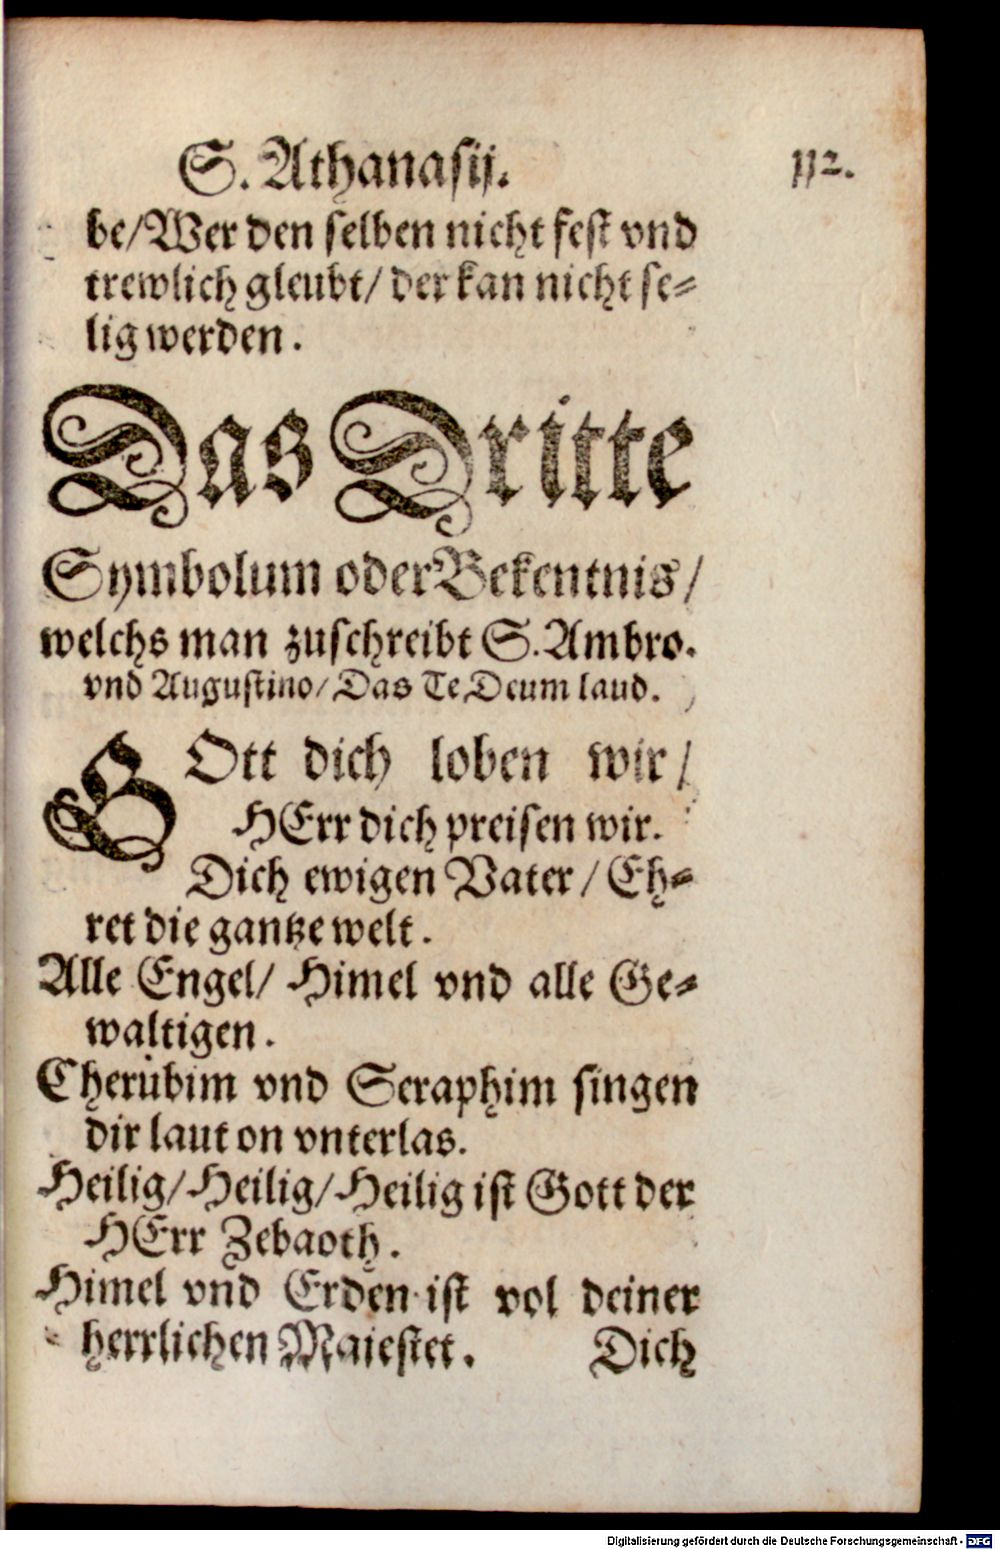 S. Athanasij.
112.
be/Wer den selben nicht fest vnd
trewlich gleubt/ der kan nicht se⸗
lig werden.
Das Dritte
Symbolum oder Bekentnis/
welchs man zuschreibt S. Ambro.
vnd Augustino/ Das Te Deum laud.
GOtt dich loben wir/
HErr dich preisen wir.
Dich ewigen Vater/ Eh⸗
ret die gantze welt.
Alle Engel/ Himel vnd alle Ge⸗
waltigen.
Cherubim vnd Seraphim singen
dir laut on vnterlas.
Heilig/Heilig/Heilig ist Gott der
HErr Zebaoth.
Himel vnd Erden ist vol deiner
herrlichen Maiestet.
Dich
Digitalisierung gefördert durch die Deutsche Forschungsgemeinschaft - DFG